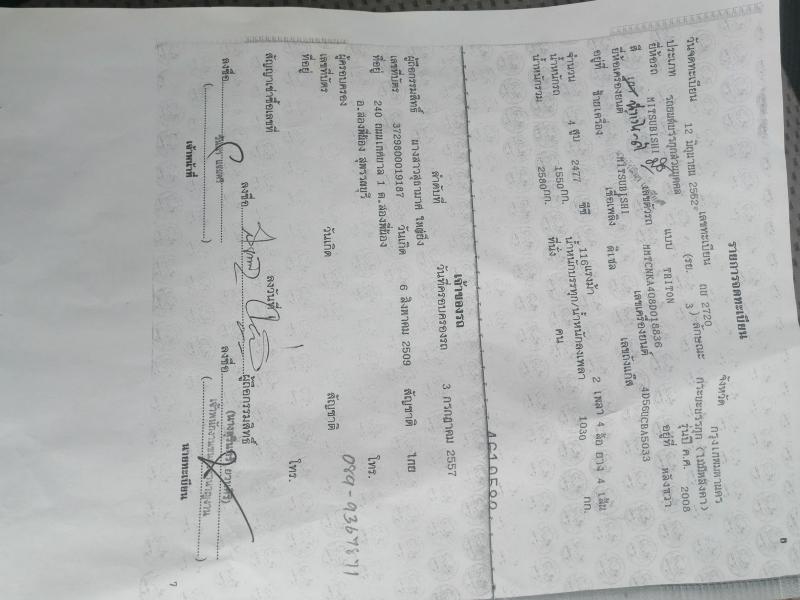 8
รายการจดทะเบียน
วันจดทะเบียน 12 มิถุนายน 2552 เลขทะเบียน ถบ 2720 จังหวัด กรุงเทพมหานคร
ประเภท รถยนต์บรรทุกส่วนบุคคล (รย. 3) ลักษณะ กระบะบรรทุก (ไม่มีหลังคา)
ยี่ห้อรถ MITSUBISHI แบบ TRITON รุ่นปี ค.ศ. 2008
สี เลขตัวรถ MMTCNKA408D018836 อยู่ที่ หลังขวา
ยี่ห้อเครื่องยนต์ MITSUBISHI เลขเครื่องยนต์ 4D56UCBA5033
อยู่ที่ ซ้ายเครื่อง เชื้อเพลิง ดีเซล เลขถังแก๊ส
จำนวน 4 สูบ 2477 ซีซี 116แรงม้า 2 เพลา 4 ล้อ ยาง 4 เส้น
น้ำหนักรถ 1550กก. น้ำหนักบรรทุก/น้ำหนักลงเพลา 1030 กก.
น้ำหนักรวม 2580กก. ที่นั่ง คน
เจ้าของรถ
ลำดับที่ วันที่ครอบครองรถ 3 กรกฎาคม 2557
ผู้ถือกรรมสิทธิ์ นางสาวสุธามาศ ใหญ่ยิ่ง
เลขที่บัตร 3729800019187 วันเกิด 6 สิงหาคม 2509 สัญชาติ ไทย
ที่อยู่ 240 ถนนเทศบาล 1 ต.สองพี่น้อง โทร.
อ.สองพี่น้อง สุพรรณบุรี 089-9367871
ผู้ครอบครอง
เลขที่บัตร วันเกิด สัญชาติ
ที่อยู่ โทร.
สัญญาเช่าซื้อเลขที่ ลงวันที่
ลงชื่อ ลงชื่อ ผู้ถือกรรมสิทธิ์
ลงชื่อ
เจ้าหน้าที่ นายทะเบียน
7